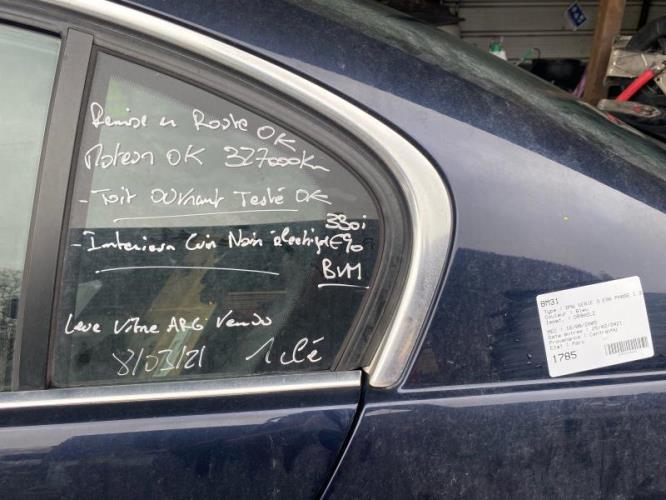 Remise en Route OK
Moteur OK 327000Km
- Toit OUvrant Testé OK
330i
- Interieur Cuir Noir électrique E90
BVM
Leve Vitre ARG Vendu
8/03/21 1 clé
BM31
Type : BMW SERIE 3 E90 PHASE 1
Couleur : Bleu
MEC : 16/06/2005
Date entree : 25/02/2021
Provenance :
Etat : Parc
1785